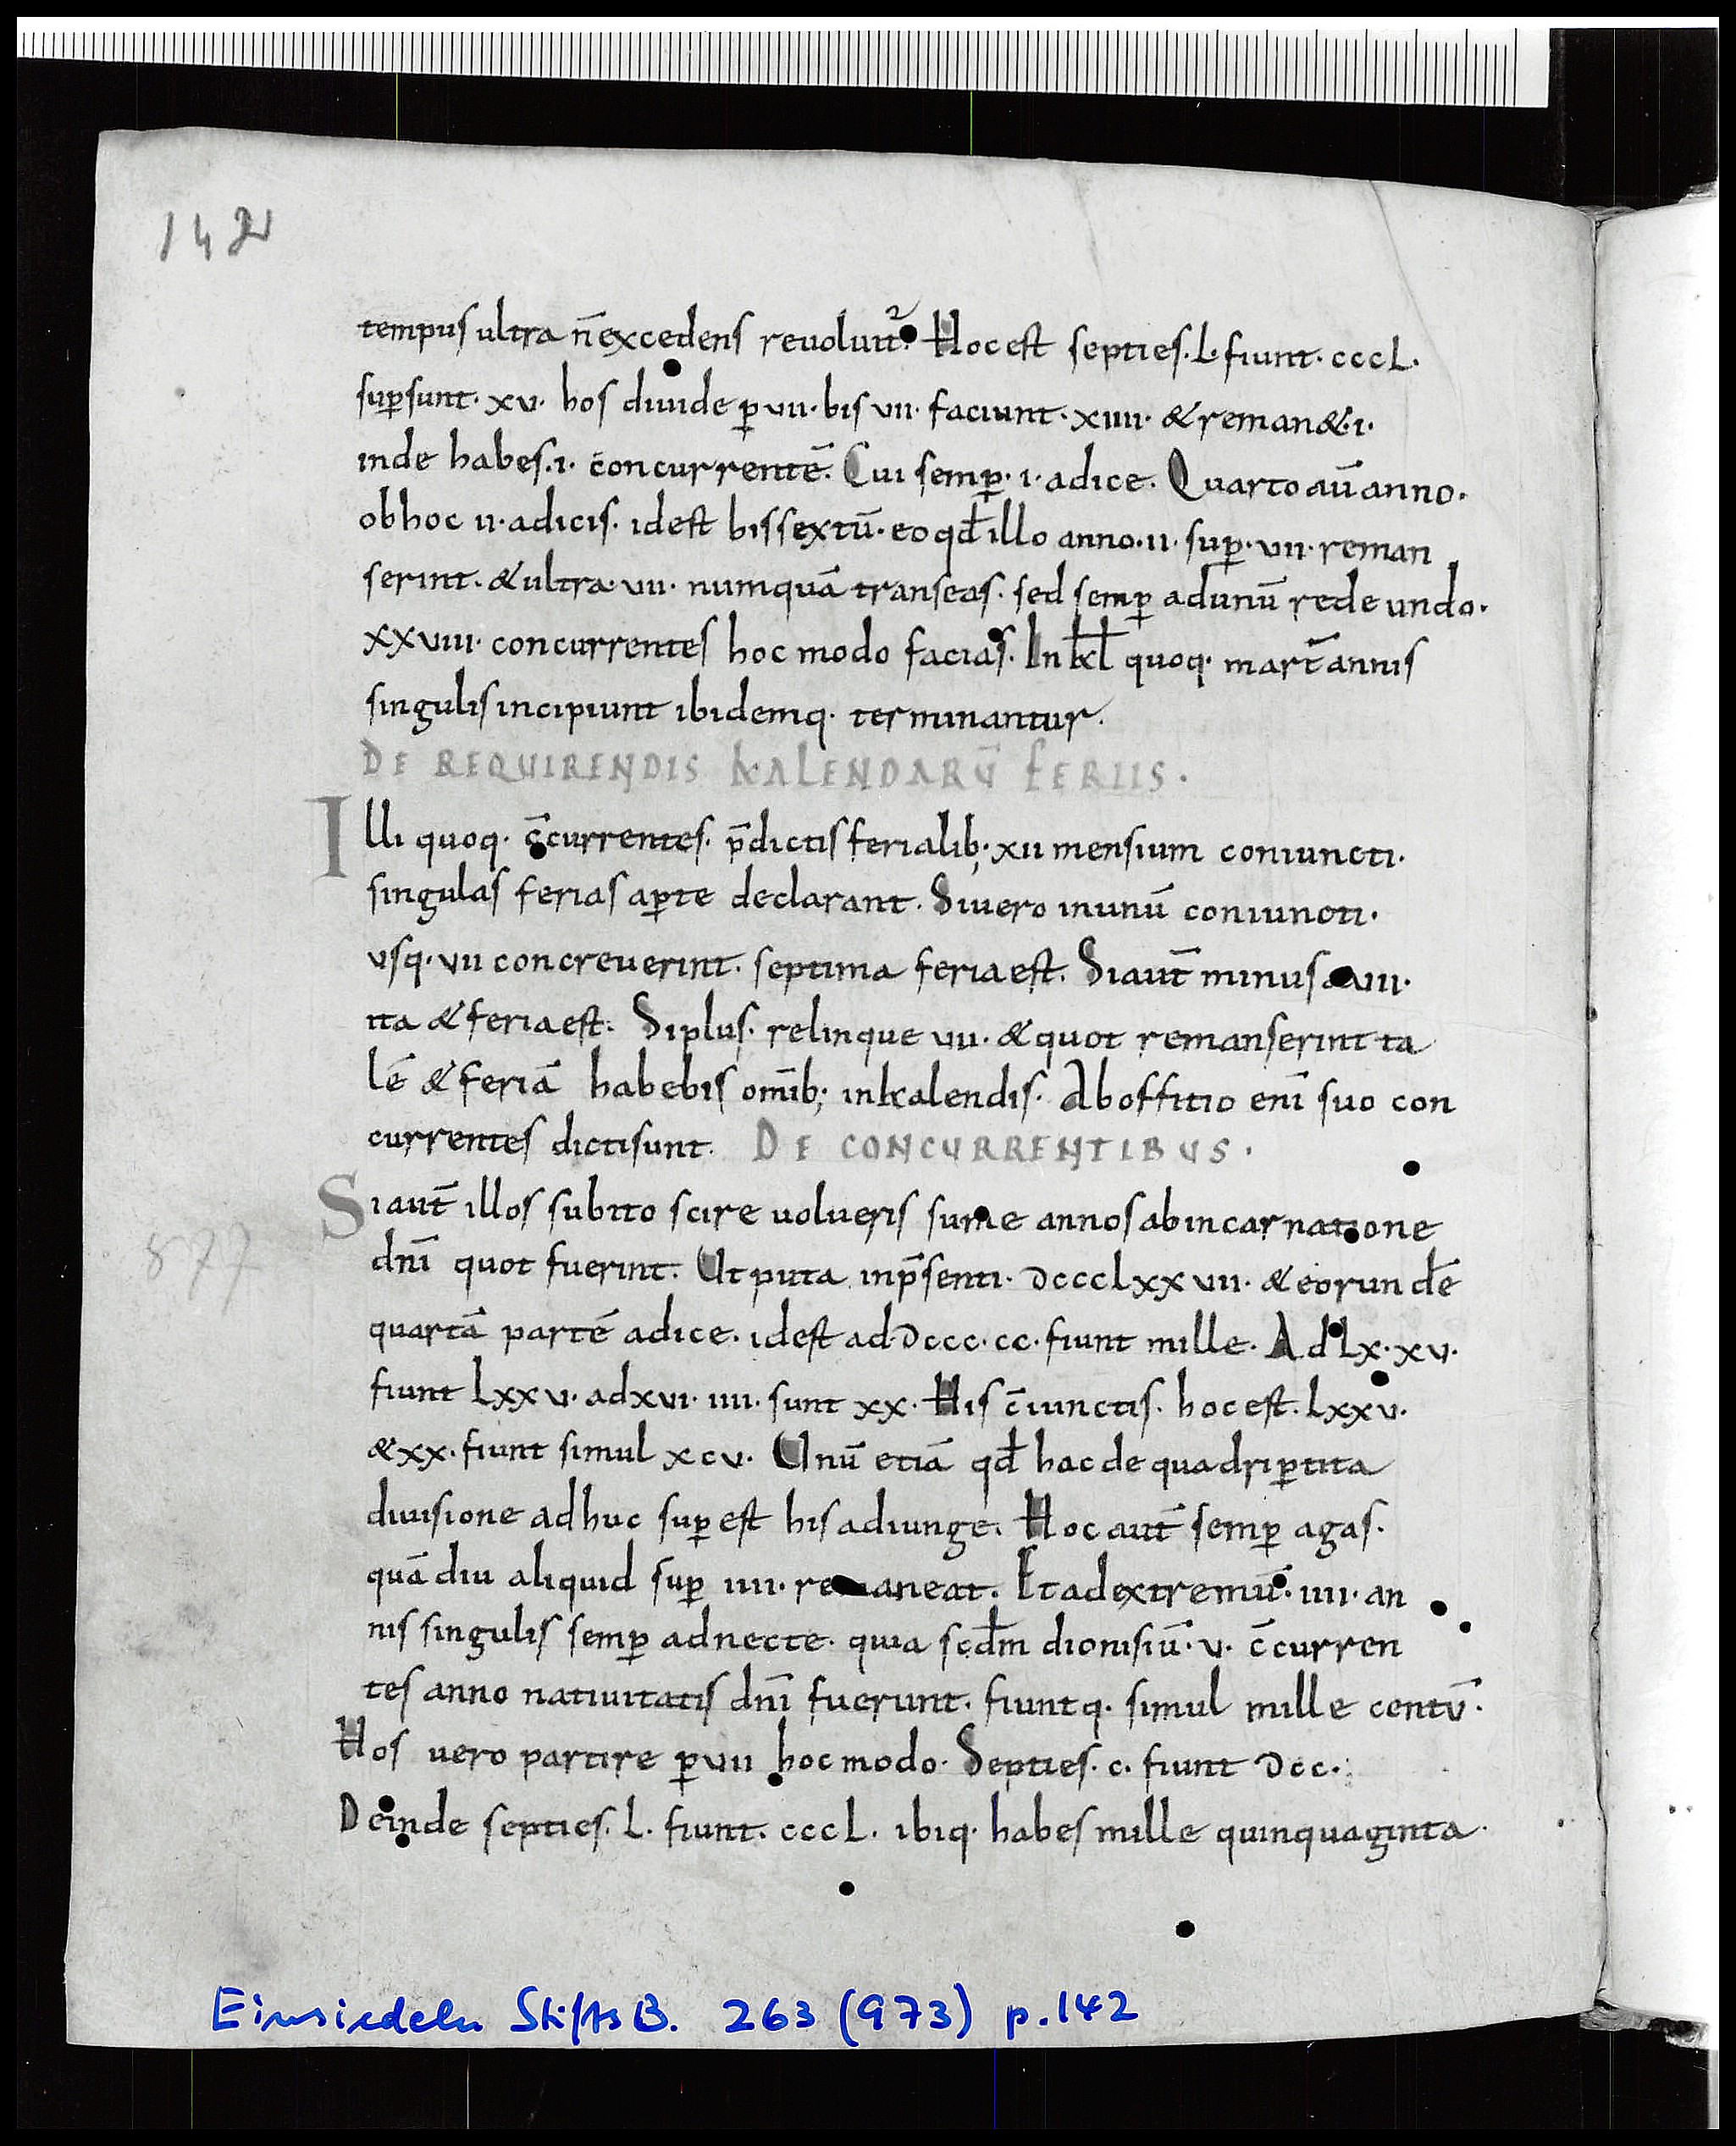 142
tempus ultra n̄ excedens reuoluit᷑. Hoc est septies. L. fiunt. cccL.
sup̱sunt. xv. hos diuide p̱ vii. bis vii. faciunt. xiiii. & reman&. i.
inde habes. i. concurrentē. Cui semp̱. i. adice. Quarto aū anno.
ob hoc ii. adicis. id est bissextū. eo qđ illo anno. ii. sup̱. vii. reman
serint. & ultra. vii. numquā transeas. sed semp̱ ad unū redeundo.
xxviii. concurrentes hoc modo facias. In kł quoq. mart̄ annis
singulis incipiunt ibidemq. terminantur.
DE REQUIRENDIS KALENDARŪ FERIIS.
Illi quoq. c̄currentes. p̄dictis ferialib; xii mensium coniuncti.
singulas ferias ap̱te declarant. Si uero in unū coniuncti.
vsq. vii concreuerint. septima feria est. Si aut̄ minus a vii.
ita & feria est. Si plus. relinque vii. & quot remanserint ta
lē & feriā habebis om̄ib; in kalendis. Ab offitio eni̅ suo con
currentes dicti sunt. DE CONCURRENTIBUS.
Si aut̄ illos subito scire uolueris sume annos ab incarnatione
877
dn̄i quot fuerint. Ut puta in p̄senti. dccclxxvii. & eorundē
quartā partē adice. id est ad. dccc. cc. fiunt mille. Ad Lx. xv.
fiunt Lxxv. ad xvi. iiii. sunt xx. His c̄iunctis. hoc est. Lxxv.
& xx. fiunt simul xcv. Unū etiā qđ hac de quadrip̱tita
diuisione adhuc sup̱est his adiunge. Hoc aut̄ semp̱ agas.
quādiu aliquid sup̱ iiii. remaneat. Et ad extremū. iiii. an
nis singulis semp̱ adnecte. quia scđm dionisiū. v. c̄curren
tes anno natiuitatis dn̄i fuerunt. fiuntq. simul mille centū.
Hos uero partire p̱ vii hoc modo. Septies. c. fiunt dcc.
Deinde septies. L. fiunt. cccL. ibiq. habes mille quinquaginta.
Einsiedeln StiftsB. 263 (973) p. 142